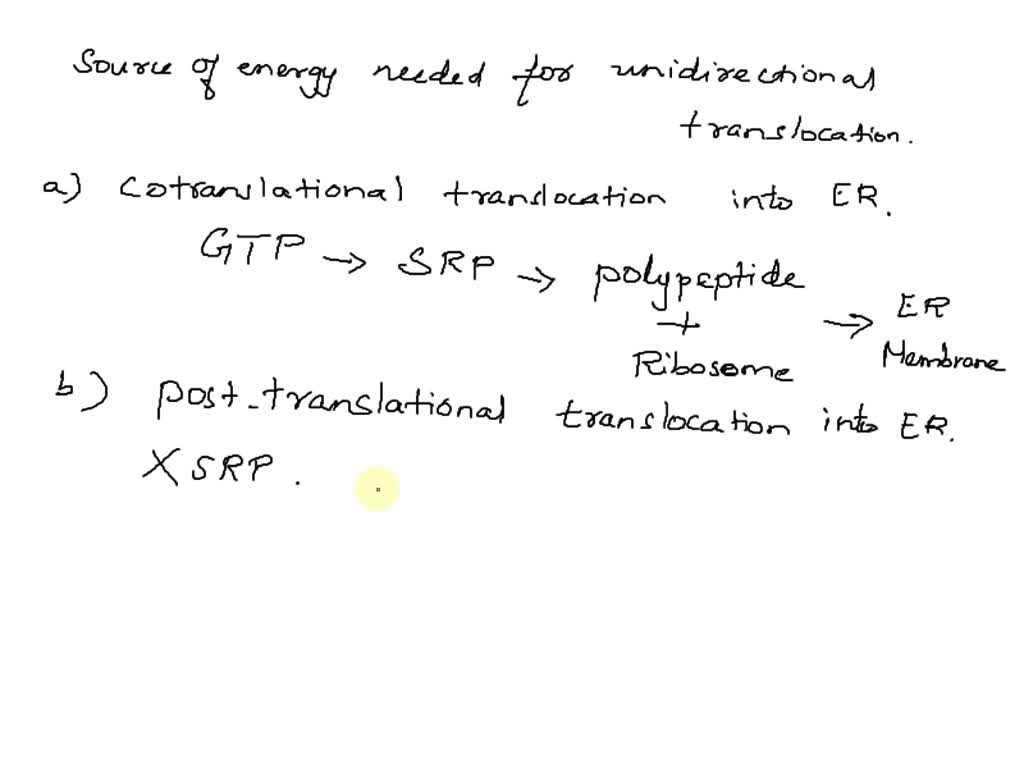 Source of energy needed for unidirectional
translocation.
a) Cotranslational translocation into ER.
GTP → SRP → polypeptide → ER
+
Ribosome Membrane
b) post-translational translocation into ER.
X SRP.